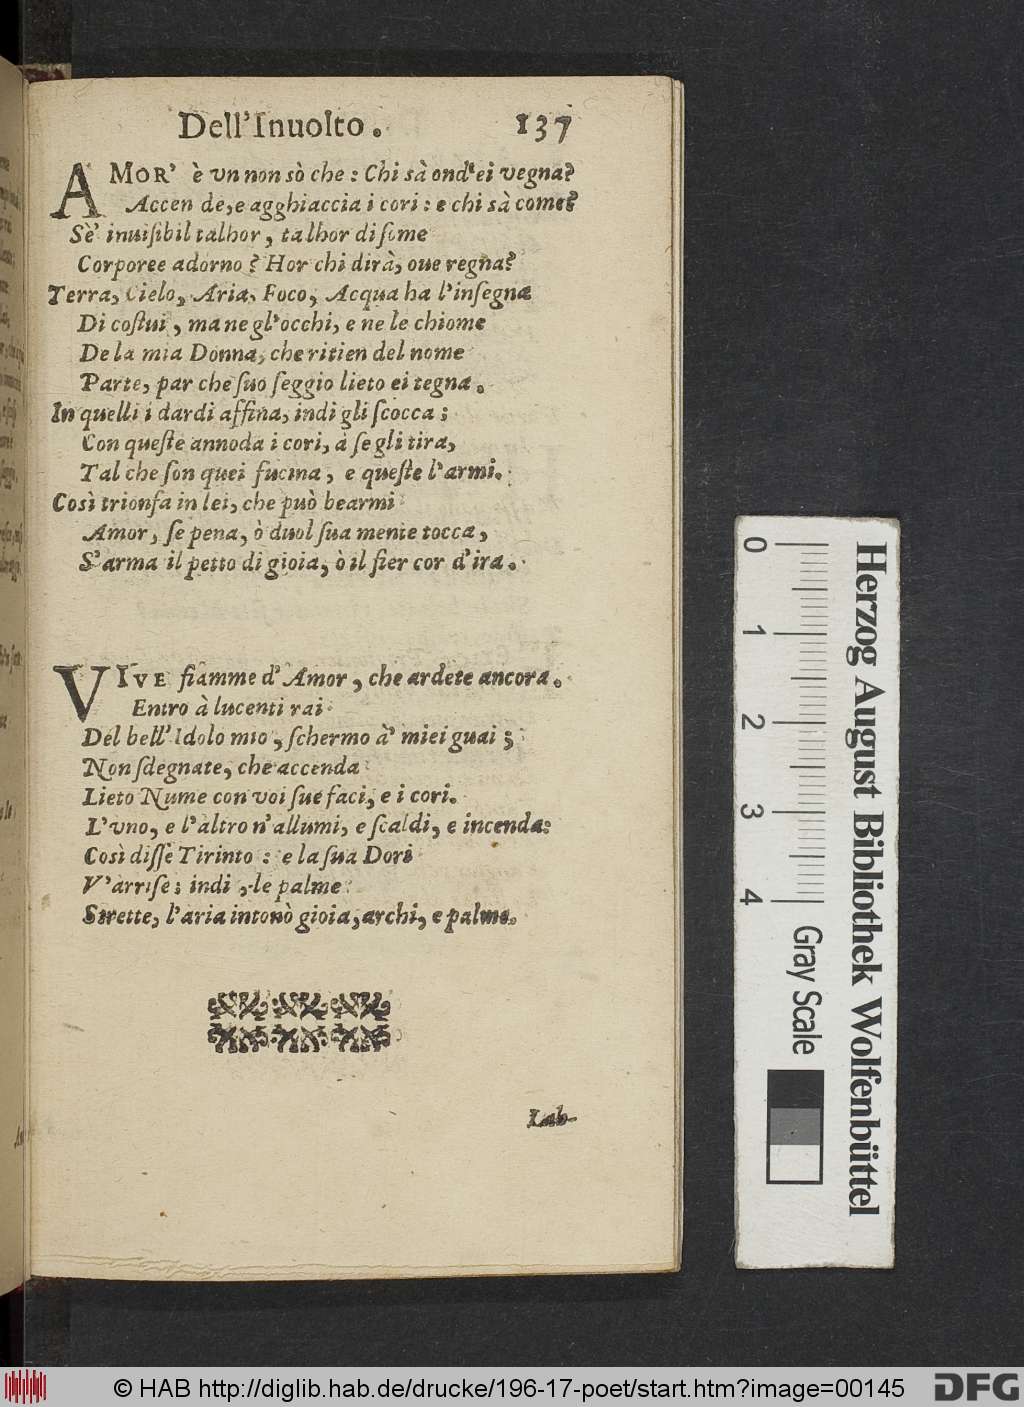 Dell'Inuolto. 137
AMOR' è vn non sò che: Chi sà ond'ei vegna?
Accende, e agghiaccia i cori: e chi sà come?
Sè' inuiſibil talhor, talhor di ſome
Corporee adorno? Hor chi dirà, oue regna?
Terra, Cielo, Aria, Foco, Acqua ha l'inſegna
Di coſtui, ma ne gl'occhi, e ne le chiome
De la mia Donna, che ritien del nome
Parte, par che ſuo ſeggio lieto ei tegna.
In quelli i dardi affina, indi gli ſcocca;
Con queſte annoda i cori, à ſe gli tira,
Tal che ſon quei fucina, e queſte l'armi.
Così trionfa in lei, che può bearmi
Amor, ſe pena, ò duol ſua mente tocca,
S'arma il petto di gioia, ò il fier cor d'ira.
VIVE fiamme d'Amor, che ardete ancora.
Entro à lucenti rai
Del bell'Idolo mio, ſchermo à' miei guai;
Non ſdegnate, che accenda
Lieto Nume con voi ſue faci, e i cori.
L'vno, e l'altro n'allumi, e ſcaldi, e incenda:
Così diſſe Tirinto: e la ſua Dori
V'arriſe; indi, le palme
Strette, l'aria intonò gioia, archi, e palme.
Lab-
0 1 2 3 4
Gray Scale
Herzog August Bibliothek Wolfenbüttel
© HAB http://diglib.hab.de/drucke/196-17-poet/start.htm?image=00145
DFG